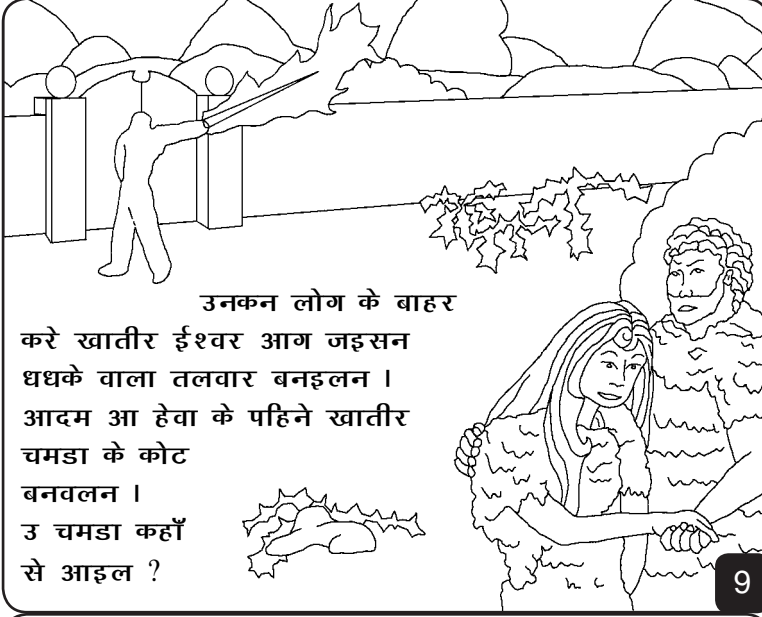 उनकन लोग के बाहर
करे खातीर ईश्वर आग जइसन
धधके वाला तलवार बनइलन ।
आदम आ हेवा के पहिने खातीर
चमडा के कोट
बनवलन ।
उ चमडा कहाँ
से आइल ?
9